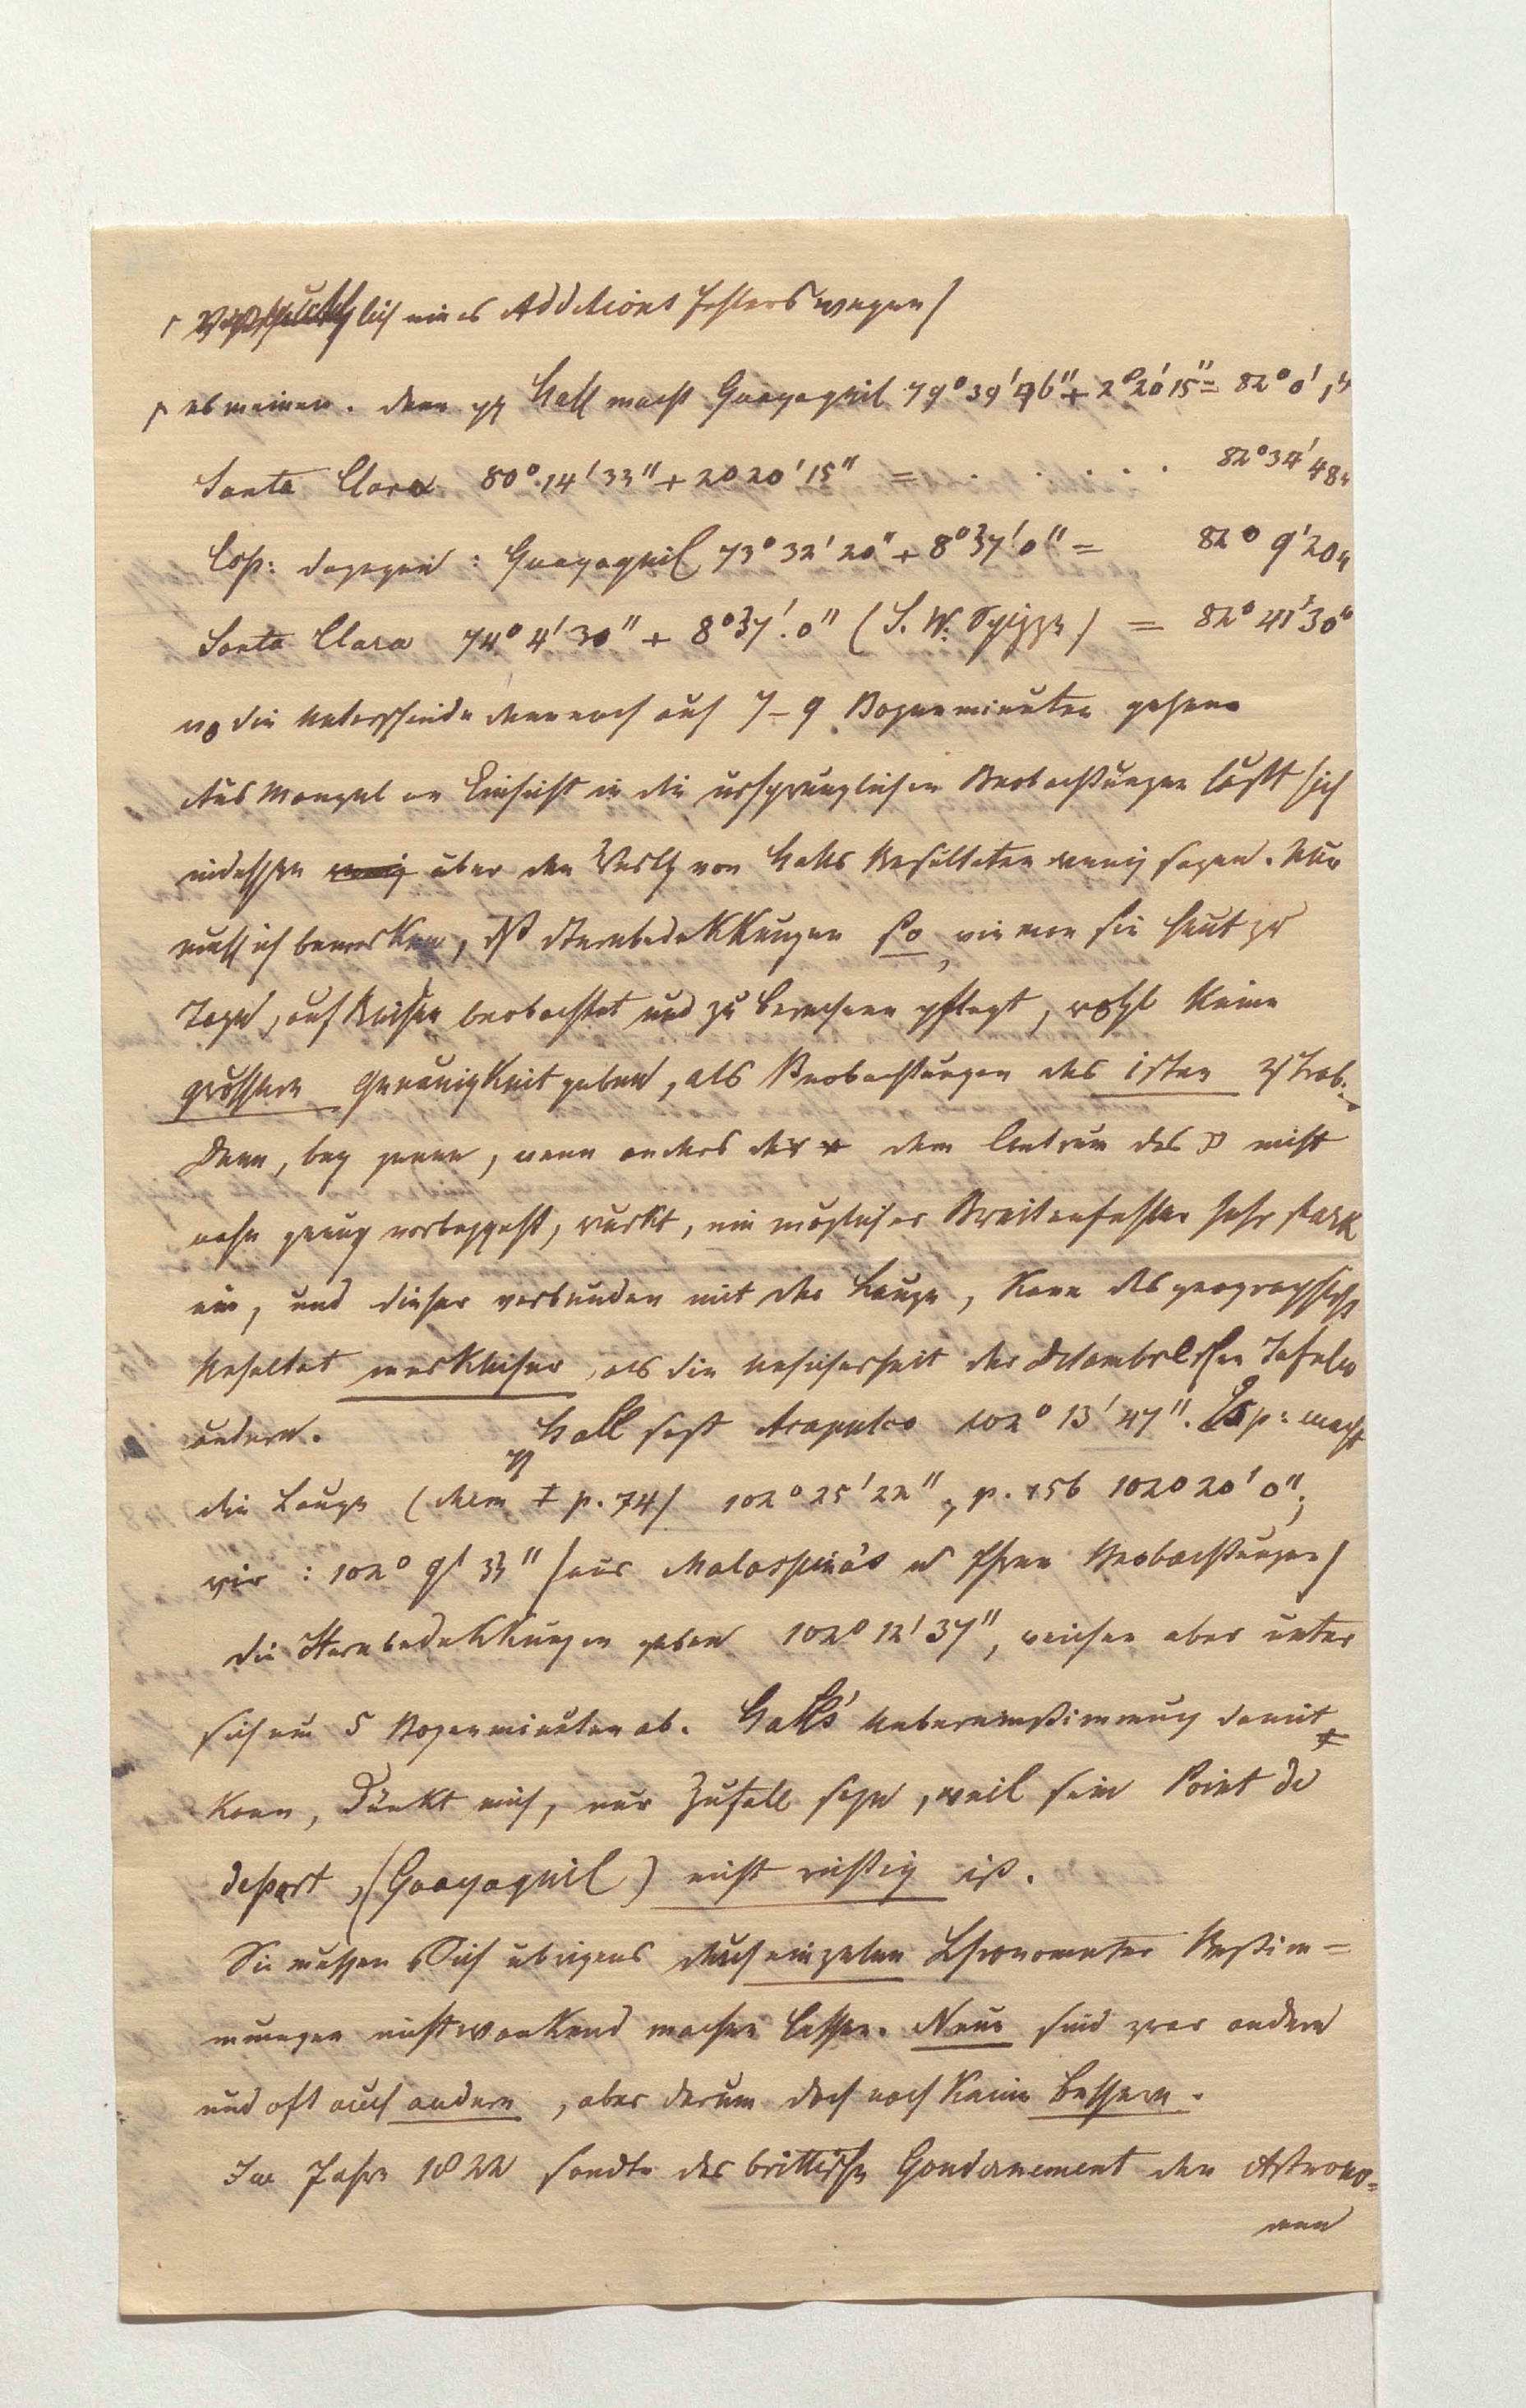 lich eines Additions Fehlers wegen)
es meinen. denn Hall macht Guayaquil 79° 39' 46" + 2° 20' 15" = 82° 0' 1"
Santa Clara 80° 14' 33" + 2° 20' 15" = . . . . 82° 34' 48"
Esp: dagegen: Guayaquil 73° 32' 20" + 8° 37' 0" = 82° 9' 20"
Santa Clara 74° 4' 30" + 8° 37' 0" (S. W. Spizze) = 82° 41' 30"
wo die Unterschiede dennoch auf 7-9 Bogenminuten gehen.
Aus Mangel an Einsicht in die ursprunglichen Beobachtungen läßt sich
indessen wenig über den Werth von Halls Resultaten wenig sagen. Nur
muß ich bemerken, daß Sternbedekkungen so, wie man sie heut zu
Tage, auf Reisen beobachtet und zu berechnen pflegt, wohl keine
grössere Genauigkeit geben, als Beobachtungen des 1sten Trab.
Denn, bey jenen, wenn anders der * dem Centrum des ☽ nicht
nahe genug vorbeygeht, wirkt, ein möglicher Breitenfehler sehr stark
ein, und dieser verbunden mit der Länge, kann das geographische
Resultat merklicher, als die Unsicherheit der Delambreschen Tafeln
ändern. Hall sezt Acapulco 102° 13' 47". Esp: macht
die Länge (Mem I p. 74) 102° 25' 22", p. 156 102° 20' 0";
wir: 102° 9' 33" (aus Malaspina's u Ihren Beobachtungen)
die Sternbedekkungen geben 102° 12' 37", weichen aber unter
sich um 5 Bogenminuten ab. Hall's Uebereinstimmung damit
kann, dünkt mich, nur Zufall seyn, weil sein Point de
depart, (Guayaquil) nicht richtig ist.
Sie müssen Sich übrigens durch einzelne Chronometer Bestim=
mungen nicht wankend machen lassen. Neue sind zwar andere
und oft auch andere, aber darum doch noch keine bessere.
Im Jahre 1822 sandte das brittische Gouvernement den Astrono=
men